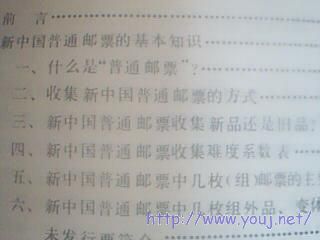 前 言
新中国普通邮票的基本知识
一、什么是“普通邮票”?
二、收集新中国普通邮票的方式
三、新中国普通邮票收集新品还是旧品?
四、新中国普通邮票收集难度系数表
五、新中国普通邮票中几枚(组)邮票的主
六、新中国普通邮票中几枚组外品、变体
未发行票简介
http://www.youj.net/